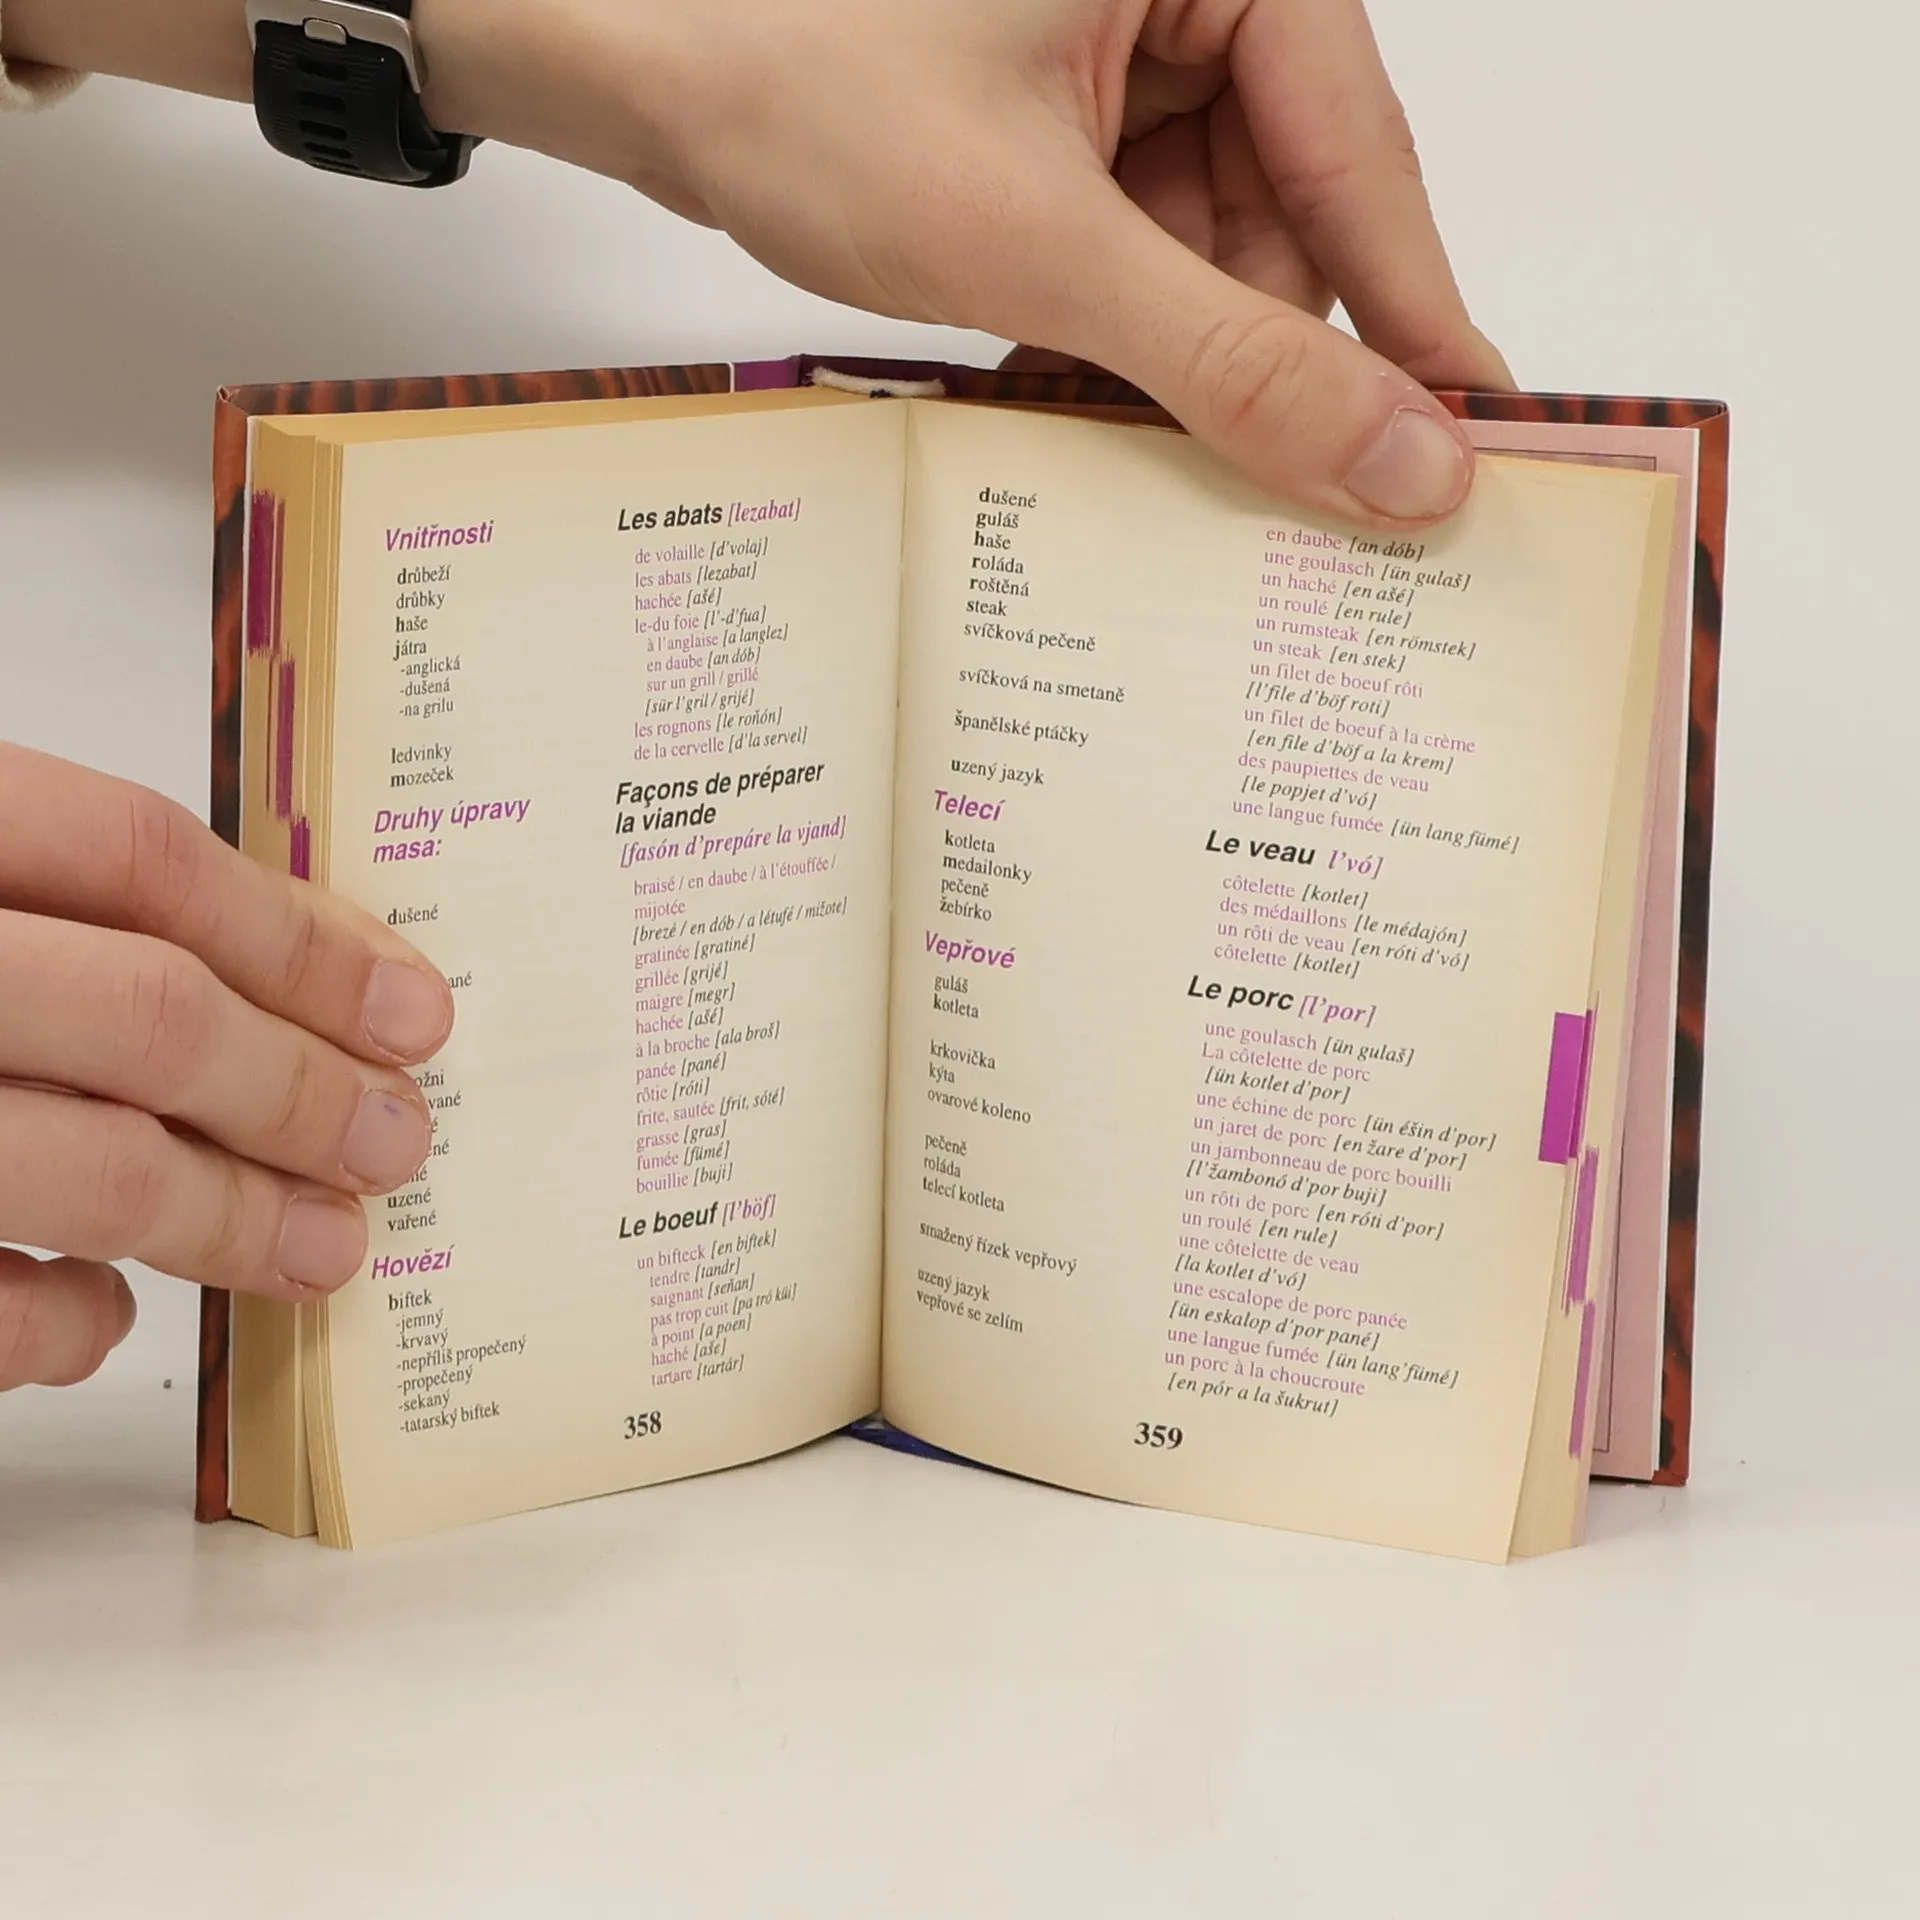 Vnitřnosti
drůbeží
drůbky
haše
játra
-anglická
-dušená
-na grilu
ledvinky
mozeček
Druhy úpravy
masa:
dušené
uzené
vařené
Hovězí
biftek
-jemný
-krvavý
-nepříliš propečený
-propečený
-sekaný
-tatarský biftek
Les abats [lezabat]
de volaille [d'volaj]
les abats [lezabat]
hachée [ašé]
le-du foie [l'-d'fua]
à l'anglaise [a langlez]
en daube [an dób]
sur un grill / grillé
[sür l'gril / grijé]
les rognons [le roňón]
de la cervelle [d'la servel]
Façons de préparer
la viande
[fasón d'prepáre la vjand]
braisé / en daube / à l'étouffée /
mijotée
[brezé / en dób / a létufé / mižote]
gratinée [gratiné]
grillée [grijé]
maigre [megr]
hachée [ašé]
à la broche [ala broš]
panée [pané]
rôtie [róti]
frite, sautée [frit, sóté]
grasse [gras]
fumée [fümé]
bouillie [buji]
Le boeuf [l'böf]
un bifteck [en biftek]
tendre [tandr]
saignant [seňan]
pas trop cuit [pa tró küi]
à point [a poen]
haché [aše]
tartare [tartár]
358
dušené
guláš
haše
roláda
roštěná
steak
svíčková pečeně
svíčková na smetaně
španělské ptáčky
uzený jazyk
Telecí
kotleta
medailonky
pečeně
žebírko
Vepřové
guláš
kotleta
krkovička
kýta
ovarové koleno
pečeně
roláda
telecí kotleta
smažený řízek vepřový
uzený jazyk
vepřové se zelím
en daube [an dób]
une goulasch [ün gulaš]
un haché [en ašé]
un roulé [en rule]
un rumsteak [en römstek]
un steak [en stek]
un filet de boeuf rôti
[l'file d'böf roti]
un filet de boeuf à la crème
[en file d'böf a la krem]
des paupiettes de veau
[le popjet d'vó]
une langue fumée [ün lang fümé]
Le veau [l'vó]
côtelette [kotlet]
des médaillons [le médajón]
un rôti de veau [en róti d'vó]
côtelette [kotlet]
Le porc [l'por]
une goulasch [ün gulaš]
La côtelette de porc
[ün kotlet d'por]
une échine de porc [ün éšin d'por]
un jaret de porc [en žare d'por]
un jambonneau de porc bouilli
[l'žambonó d'por buji]
un rôti de porc [en róti d'por]
un roulé [en rule]
une côtelette de veau
[la kotlet d'vó]
une escalope de porc panée
[ün eskalop d'por pané]
une langue fumée [ün lang'fümé]
un porc à la choucroute
[en pór a la šukrut]
359